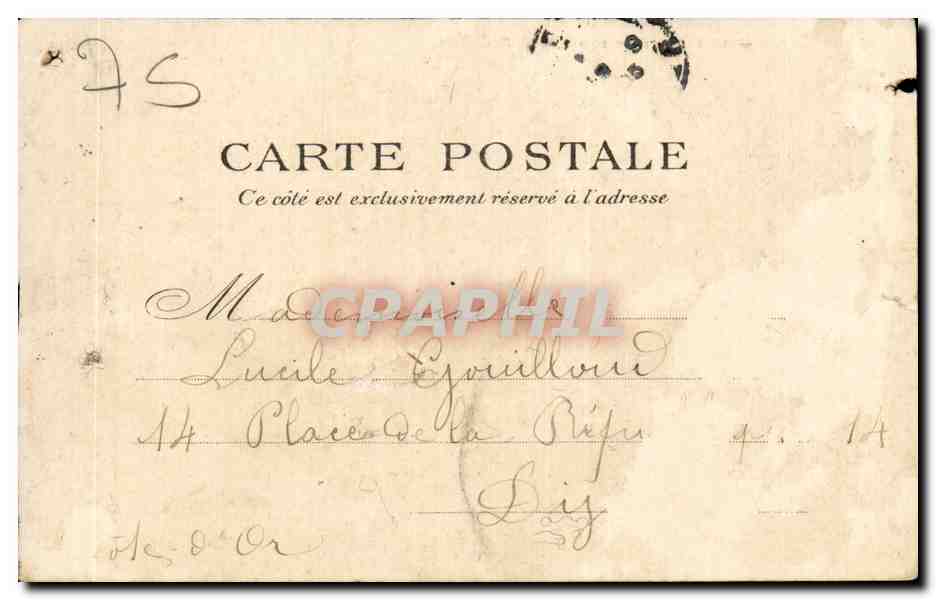 75
CARTE POSTALE
Ce côté est exclusivement réservé à l'adresse
Mademoiselle
CPAPHIL
Lucile Gouilloud
14 Place de la Répu q. 14
Dij
ôte-d'Or